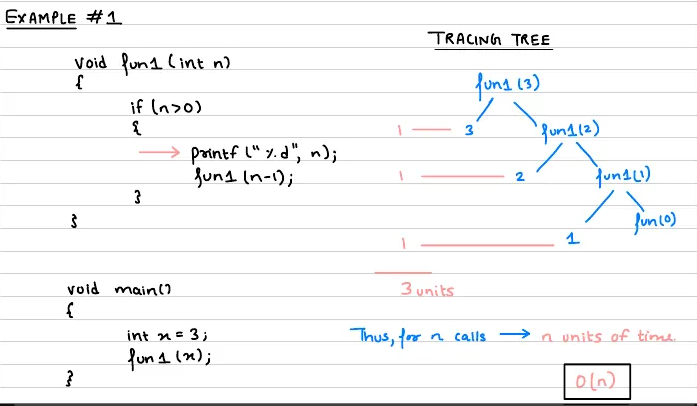 EXAMPLE #1
void fun1 (int n)
{
if (n>0)
{
printf ("%d", n);
fun1 (n-1);
}
}
void main()
{
int x = 3;
fun1 (x);
}
TRACING TREE
fun1 (3)
1 3 fun1(2)
1 2 fun1(1)
fun(0)
1 1
3 units
Thus, for n calls → n units of time.
O(n)